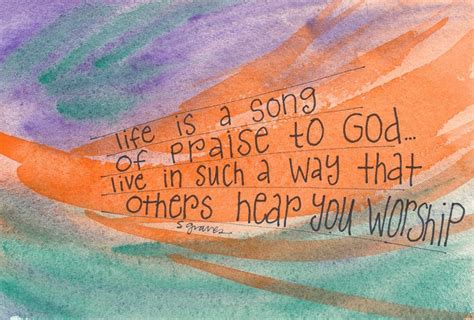 life is a song
of praise to God...
live in such a way that
others hear you worship
s graves